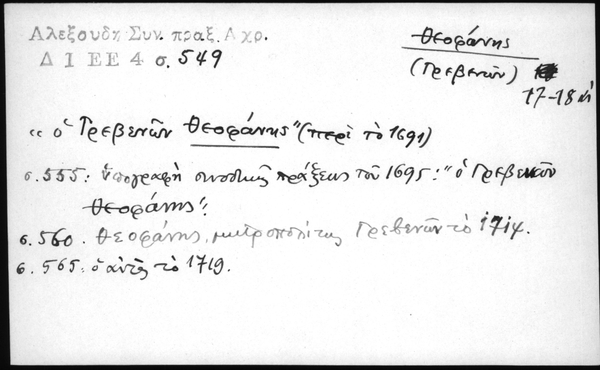 Αλεξουδη Συν. πραξ. Αχρ.
Δ 1 ΕΕ 4 σ. 549
Θεοφάνης
(Γρεβενῶν)
17-18 αἰ
« ὁ Γρεβενῶν Θεοφάνης" (περὶ τὸ 1691)
σ. 555: ὑπογραφὴ συνοδικῆς πράξεως τοῦ 1695: "ὁ Γρεβενῶν
Θεοφάνης".
σ. 560. Θεοφάνης, μητροπολίτης Γρεβενῶν τὸ 1714.
σ. 565: ὁ αὐτὸς τὸ 1719.